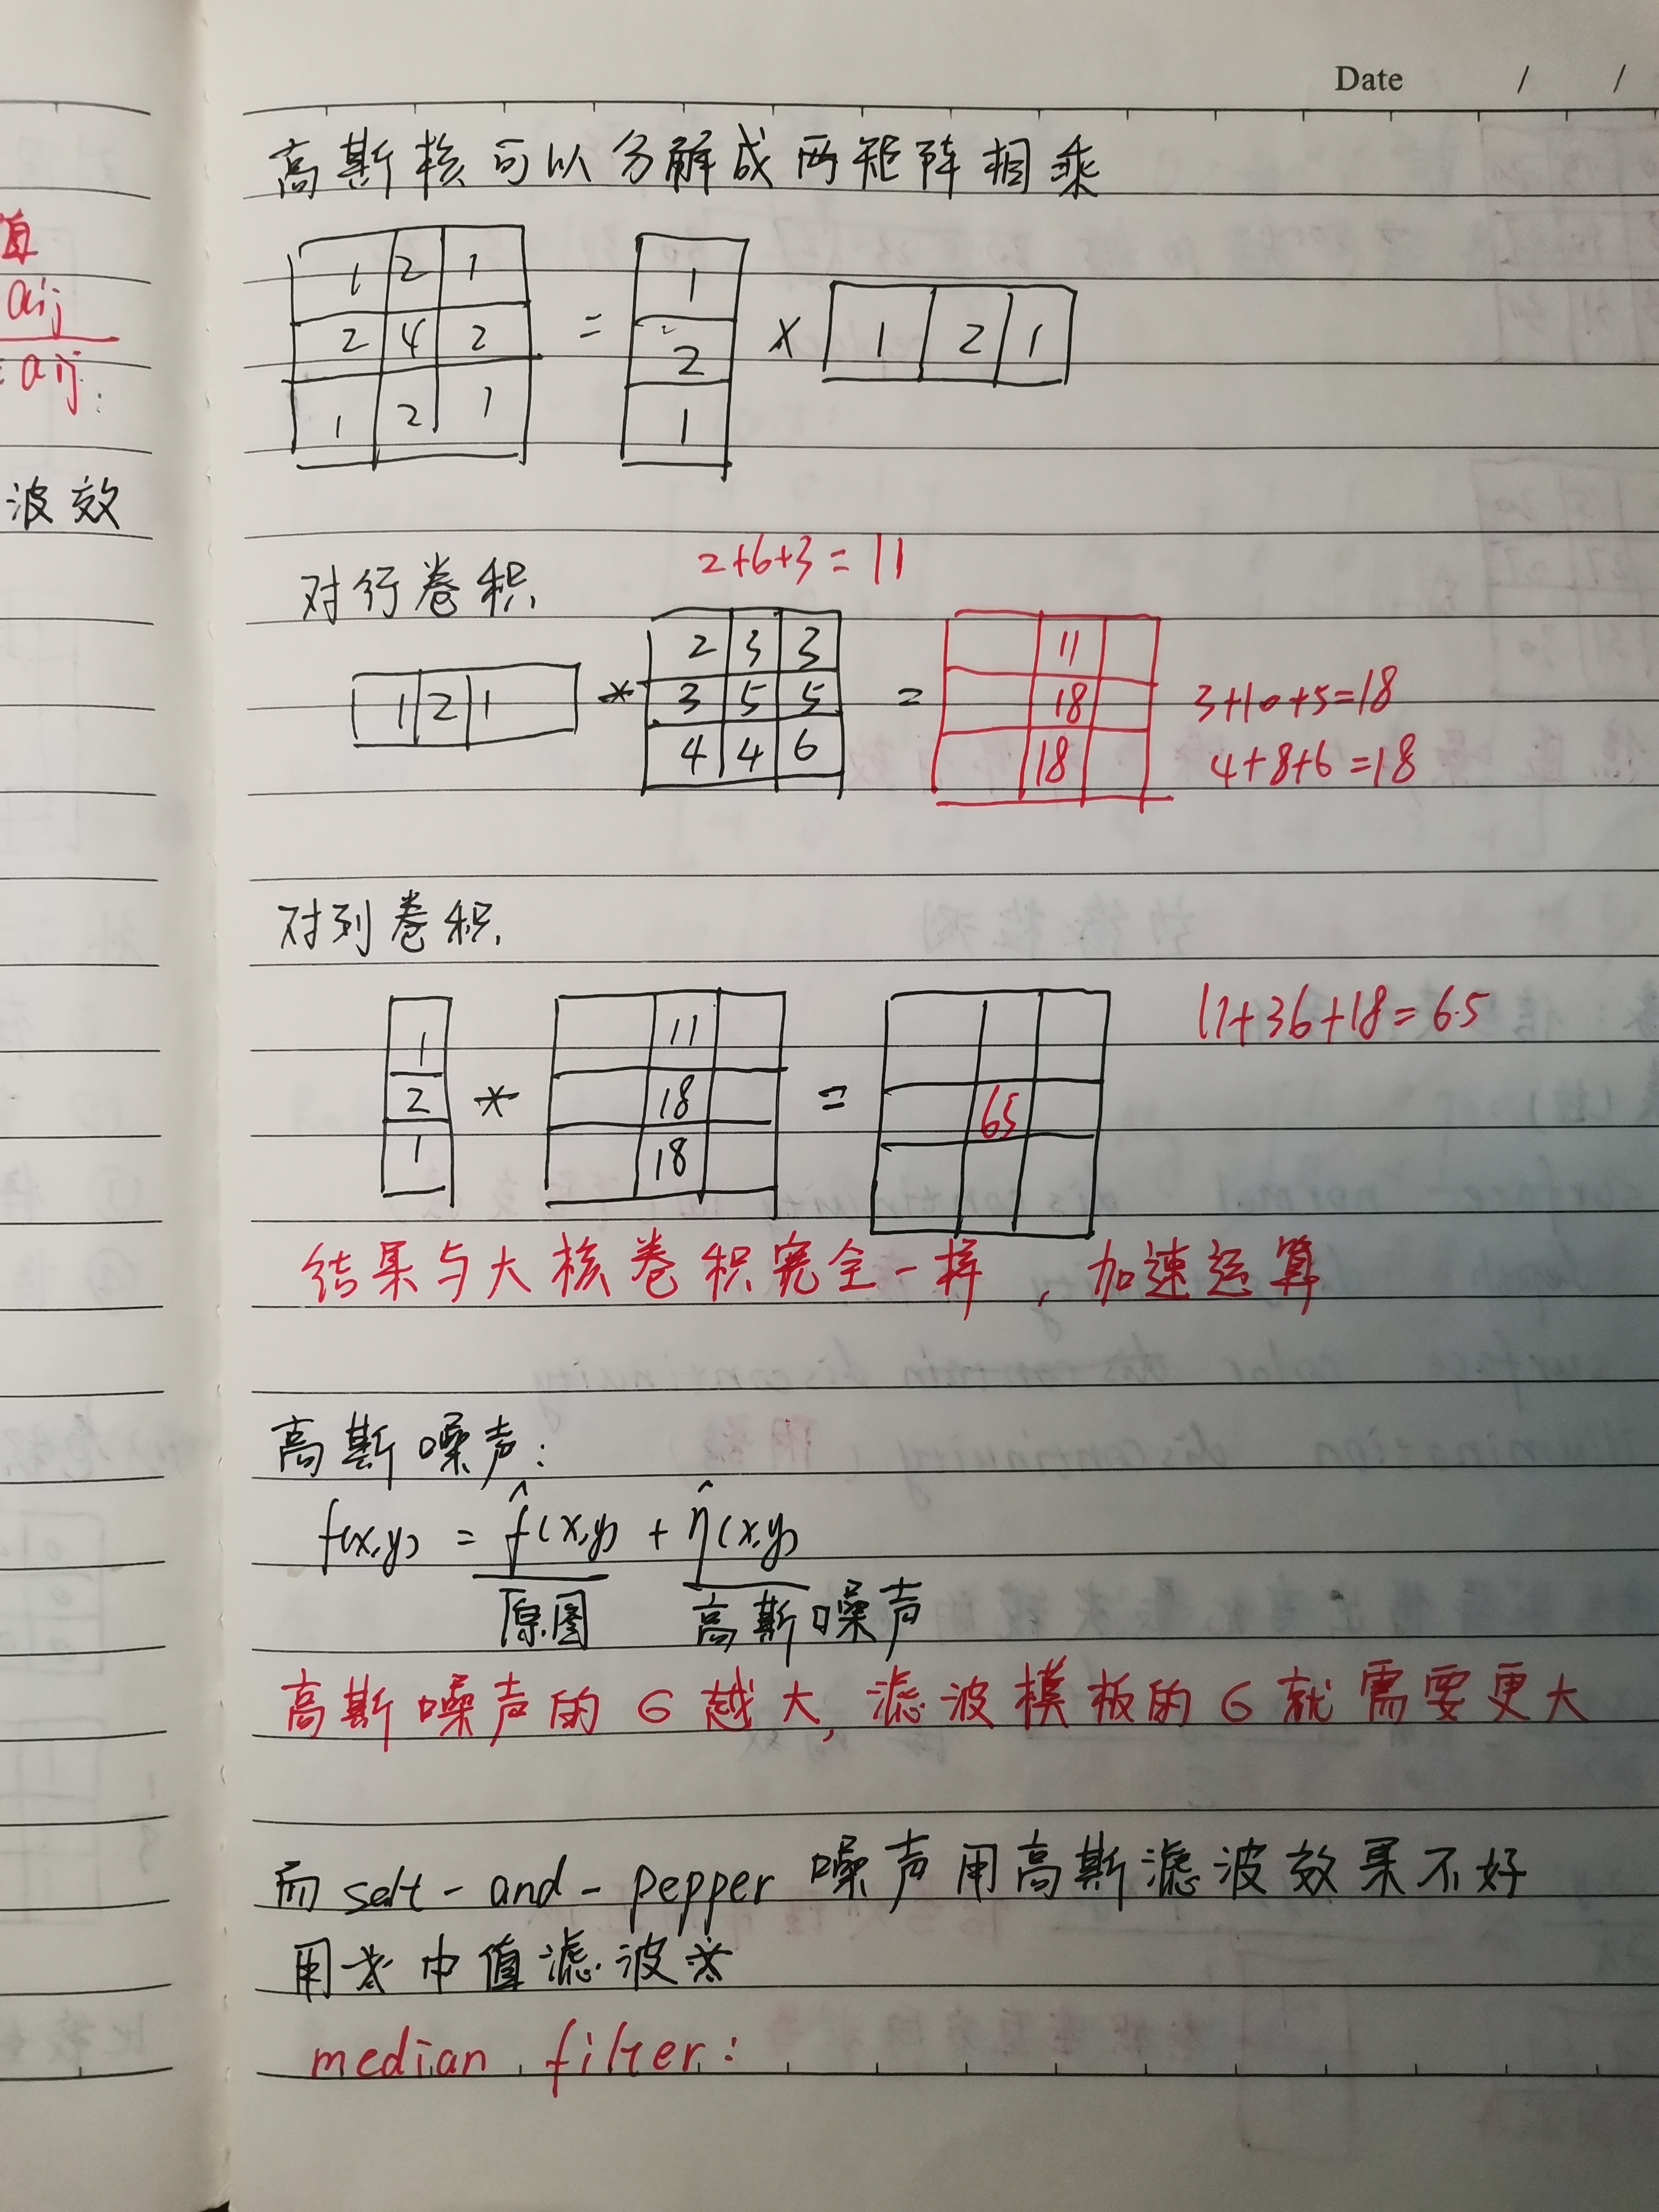 Date / /
高斯核可以分解成两矩阵相乘
值
aij
aij
1 2 1
2 4 2
1 2 1
=
1
2
1
× 1 2 1
波效
对行卷积
2+6+3=11
1 2 1 *
2 3 3
3 5 5
4 4 6
=
11
18
18
3+10+5=18
4+8+6=18
对列卷积
1
2
1
*
11
18
18
=
65
11+36+18=65
结果与大核卷积完全一样，加速运算
高斯噪声:
f(x,y) = f̂(x,y) + η̂(x,y)
原图 高斯噪声
高斯噪声的σ越大,滤波模板的σ就需要更大
而salt-and-pepper噪声用高斯滤波效果不好
用中值滤波
median filter: